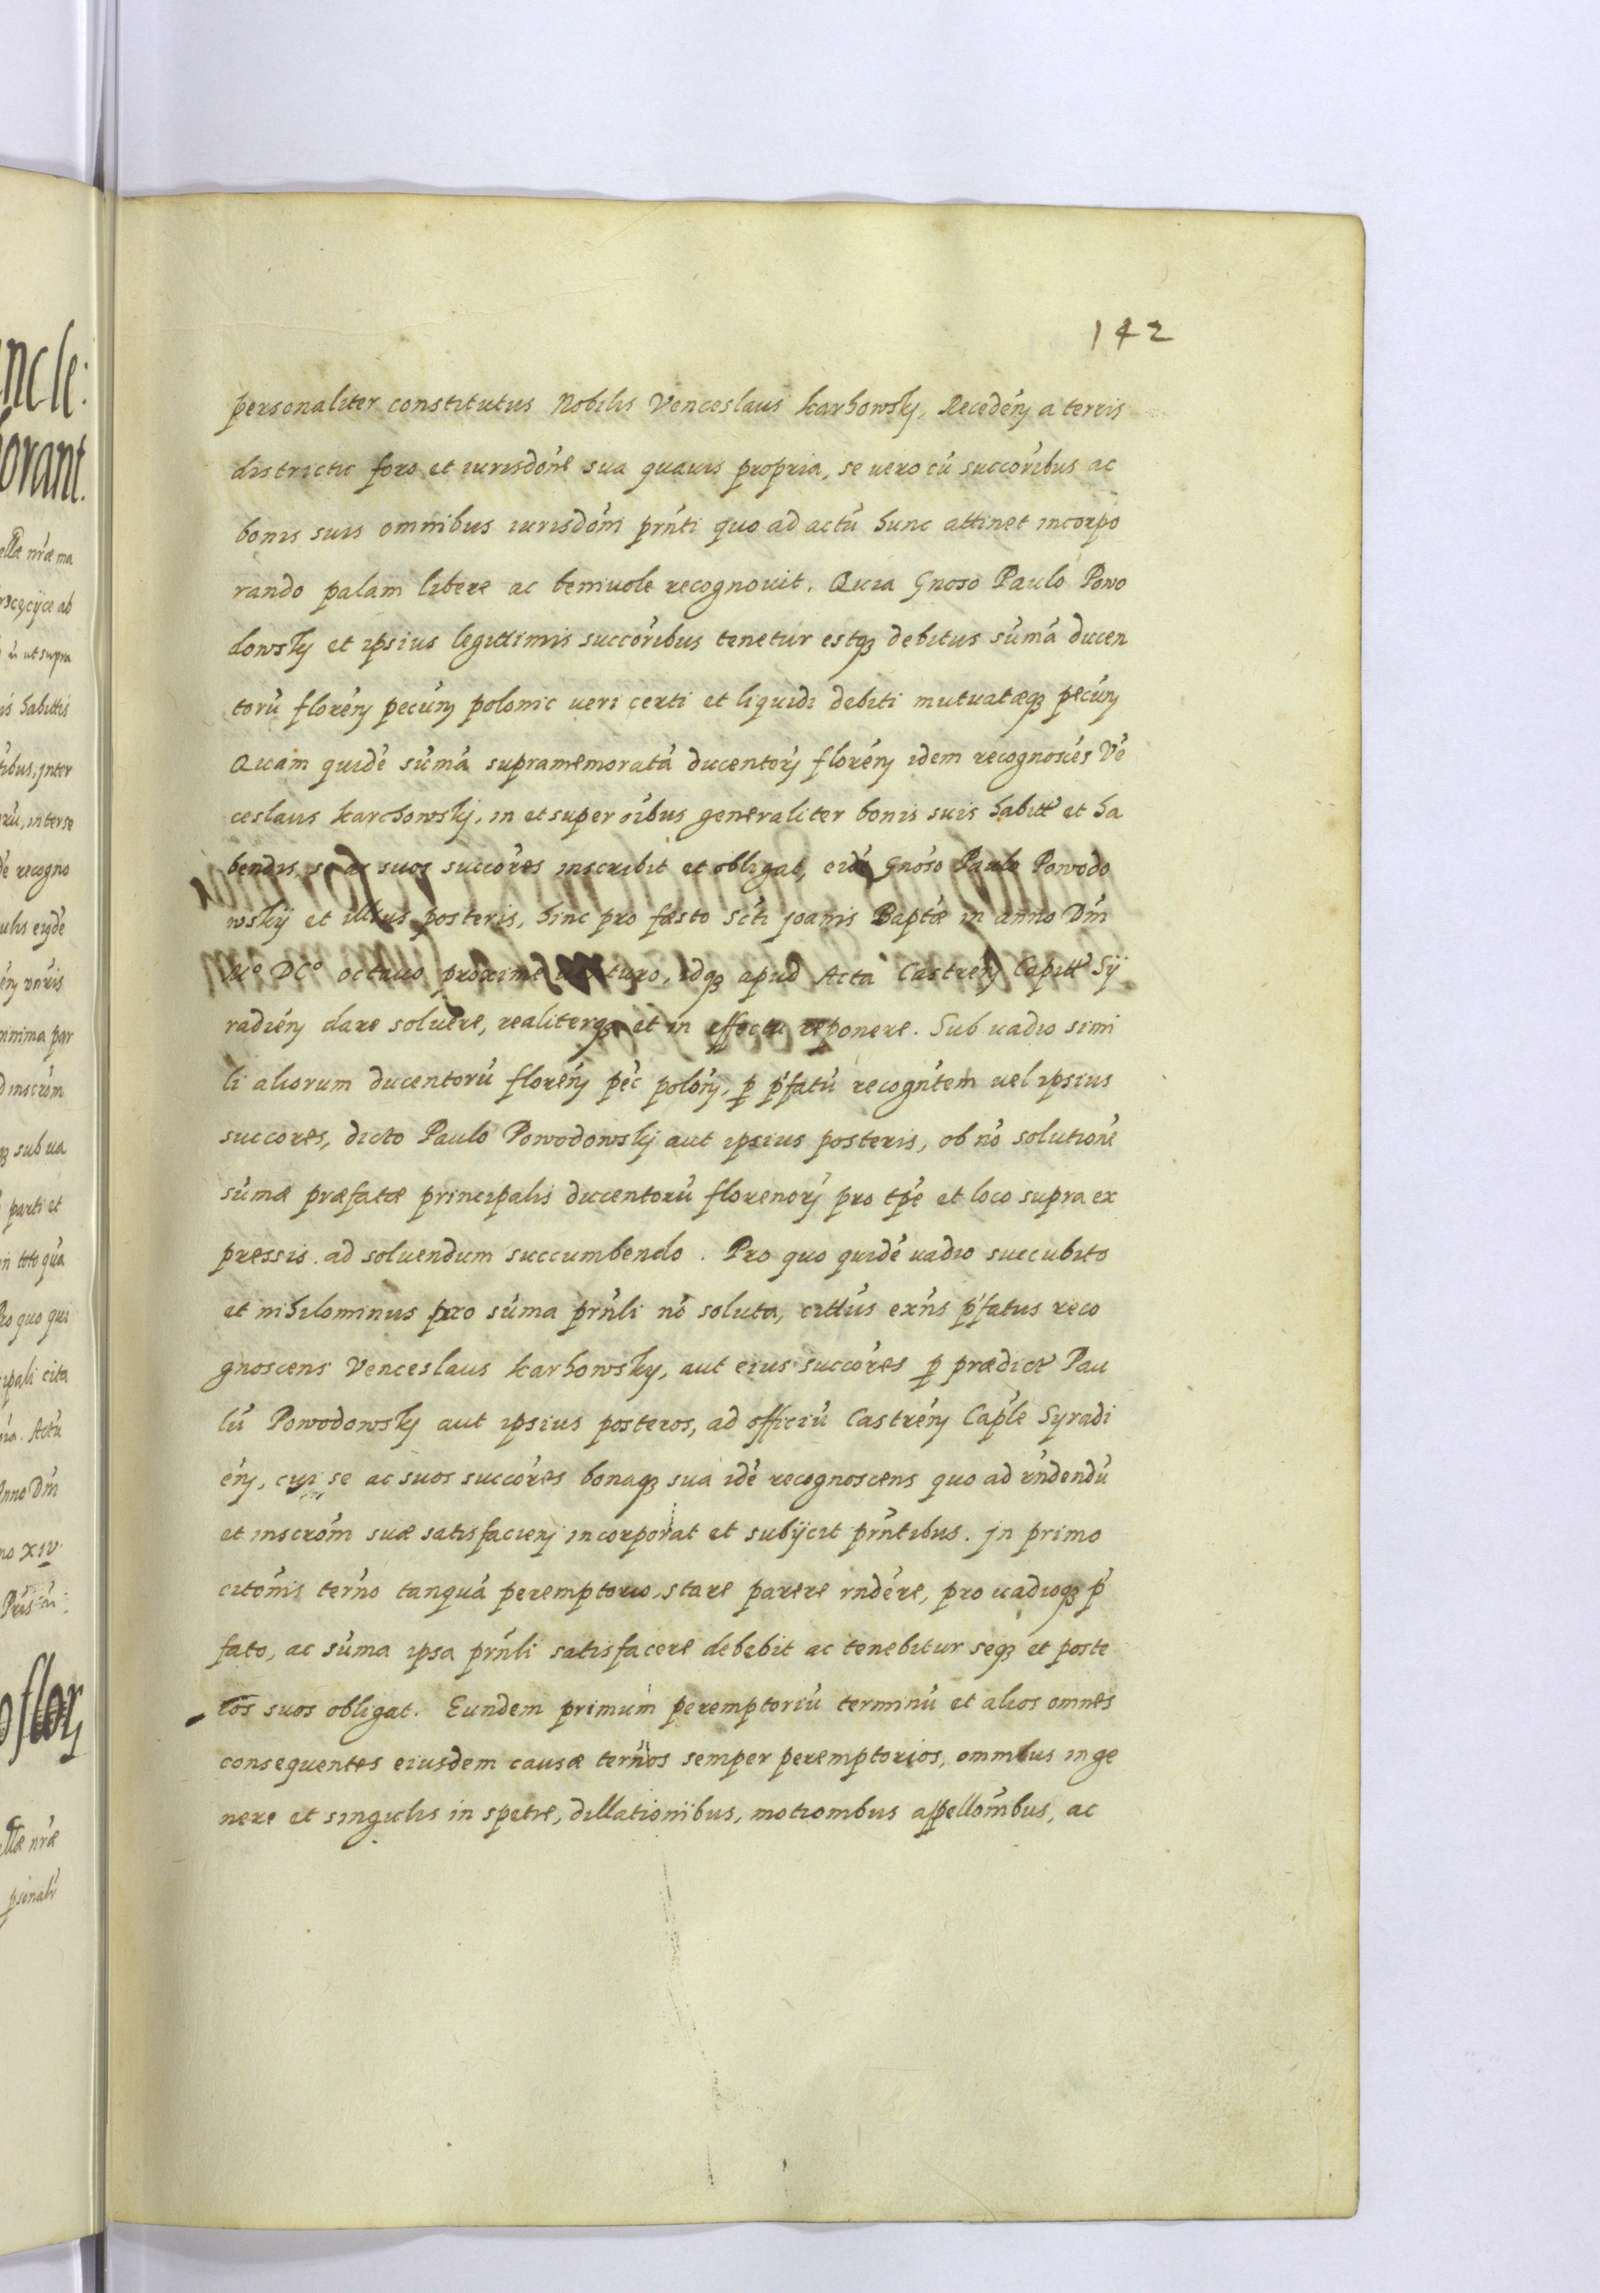 142
personaliter constitutus Nobilis Venceslaus karhowsky, Recedény a terris
districtu foro et iurisdóne sua quauis propria, se uero cú succoribus ac
bonis suis omnibus iurisdóni prńti quo ad actú hunc attinet incorpo
rando palam libere ac beniuole recognouit. Quia Gnoso Paulo Powo
dowsky et ipsius legittimis succoribus tenetur estqȝ debitus súmá ducen
torú florény pecúny polonic ueri certi et liquidi debiti mutuatæqȝ pecúny
Quam quidé súmá supramemoratá ducentorȷ florény idem recognoscés Vé
ceslaus karchowsky, in et super oibus generaliter bonis suis habitt et ha
bendis, se ac suos succores inscribit et obligat, eidé Gnoso Paulo Powodo
wskij et illius posteris, hinc pro fæsto Scti joanis Baptæ in anno Dńi
Mo DCo octauo proxime uenturo, idqȝ apud Acta Castrény Capitt Sÿ
radiény dare soluere, realiterqȝ et in effectu reponere. Sub uadio simi
li aliorum ducentorú florény péc polóny, p p'fatú recogńtem uel ipsius
succores, dicto Paulo Powodowsky aut ipsius posteris, ob nó solutioné
súmæ præfatæ principalis ducentorú florenorȷ pro tpé et loco supra ex
pressis. ad soluendum succumbendo. Pro quo quidé uadio succubito
et nihilominus pro súma prńli nó soluta, cittús exńs p'fatus reco
gnoscens Venceslaus karhowsky, aut eius succores p prædict Pau
lú Powodowsky aut ipsius posteros, ad officiú Castrény Caple Syradi
ény, cui se ac suos succores bonaqȝ sua idé recognoscens quo ad rńdendú
et inscróni suæ satisfacieny incorporat et subijcit prńtibus. jn primo
citónis terno tanquá peremptorio, stare parere rndére, pro uadioqȝ p'
fato, ac súma ipsa prńli satisfacere debebit ac tenebitur seqȝ et poste
ros suos obligat. Eundem primum peremptoriú terminú et alios omnes
consequentes eiusdem causæ ternos semper peremptorios, omnibus in ge
nere et singulis in spetie, dillationibus, motionibus appellónibus, ac